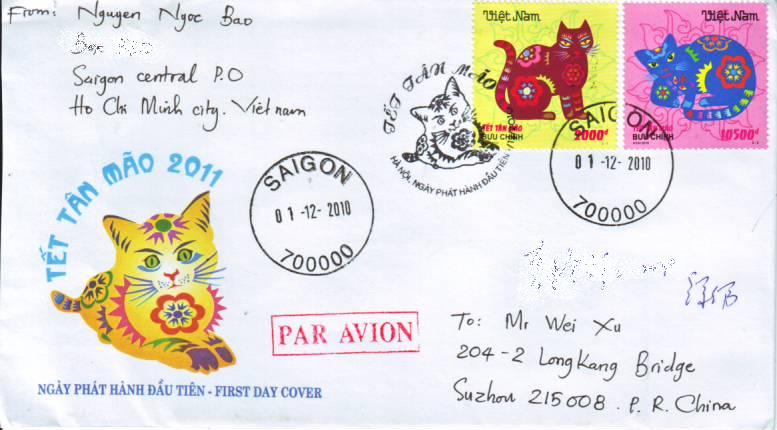 From: Nguyen Ngoc Bao
Saigon central P.O
Ho Chi Minh city. Việt nam
Việt Nam
TẾT TÂN MÃO
BƯU CHÍNH
2000đ
Việt Nam
TẾT TÂN MÃO
BƯU CHÍNH
10500đ
TẾT TÂN MÃO
HÀ NỘI, NGÀY PHÁT HÀNH ĐẦU TIÊN
SAIGON
01-12-2010
700000
SAIGON
01-12-2010
700000
TẾT TÂN MÃO 2011
PAR AVION
NGÀY PHÁT HÀNH ĐẦU TIÊN - FIRST DAY COVER
To: Mr Wei Xu
204-2 LongKang Bridge
Suzhou 215008. P. R. China